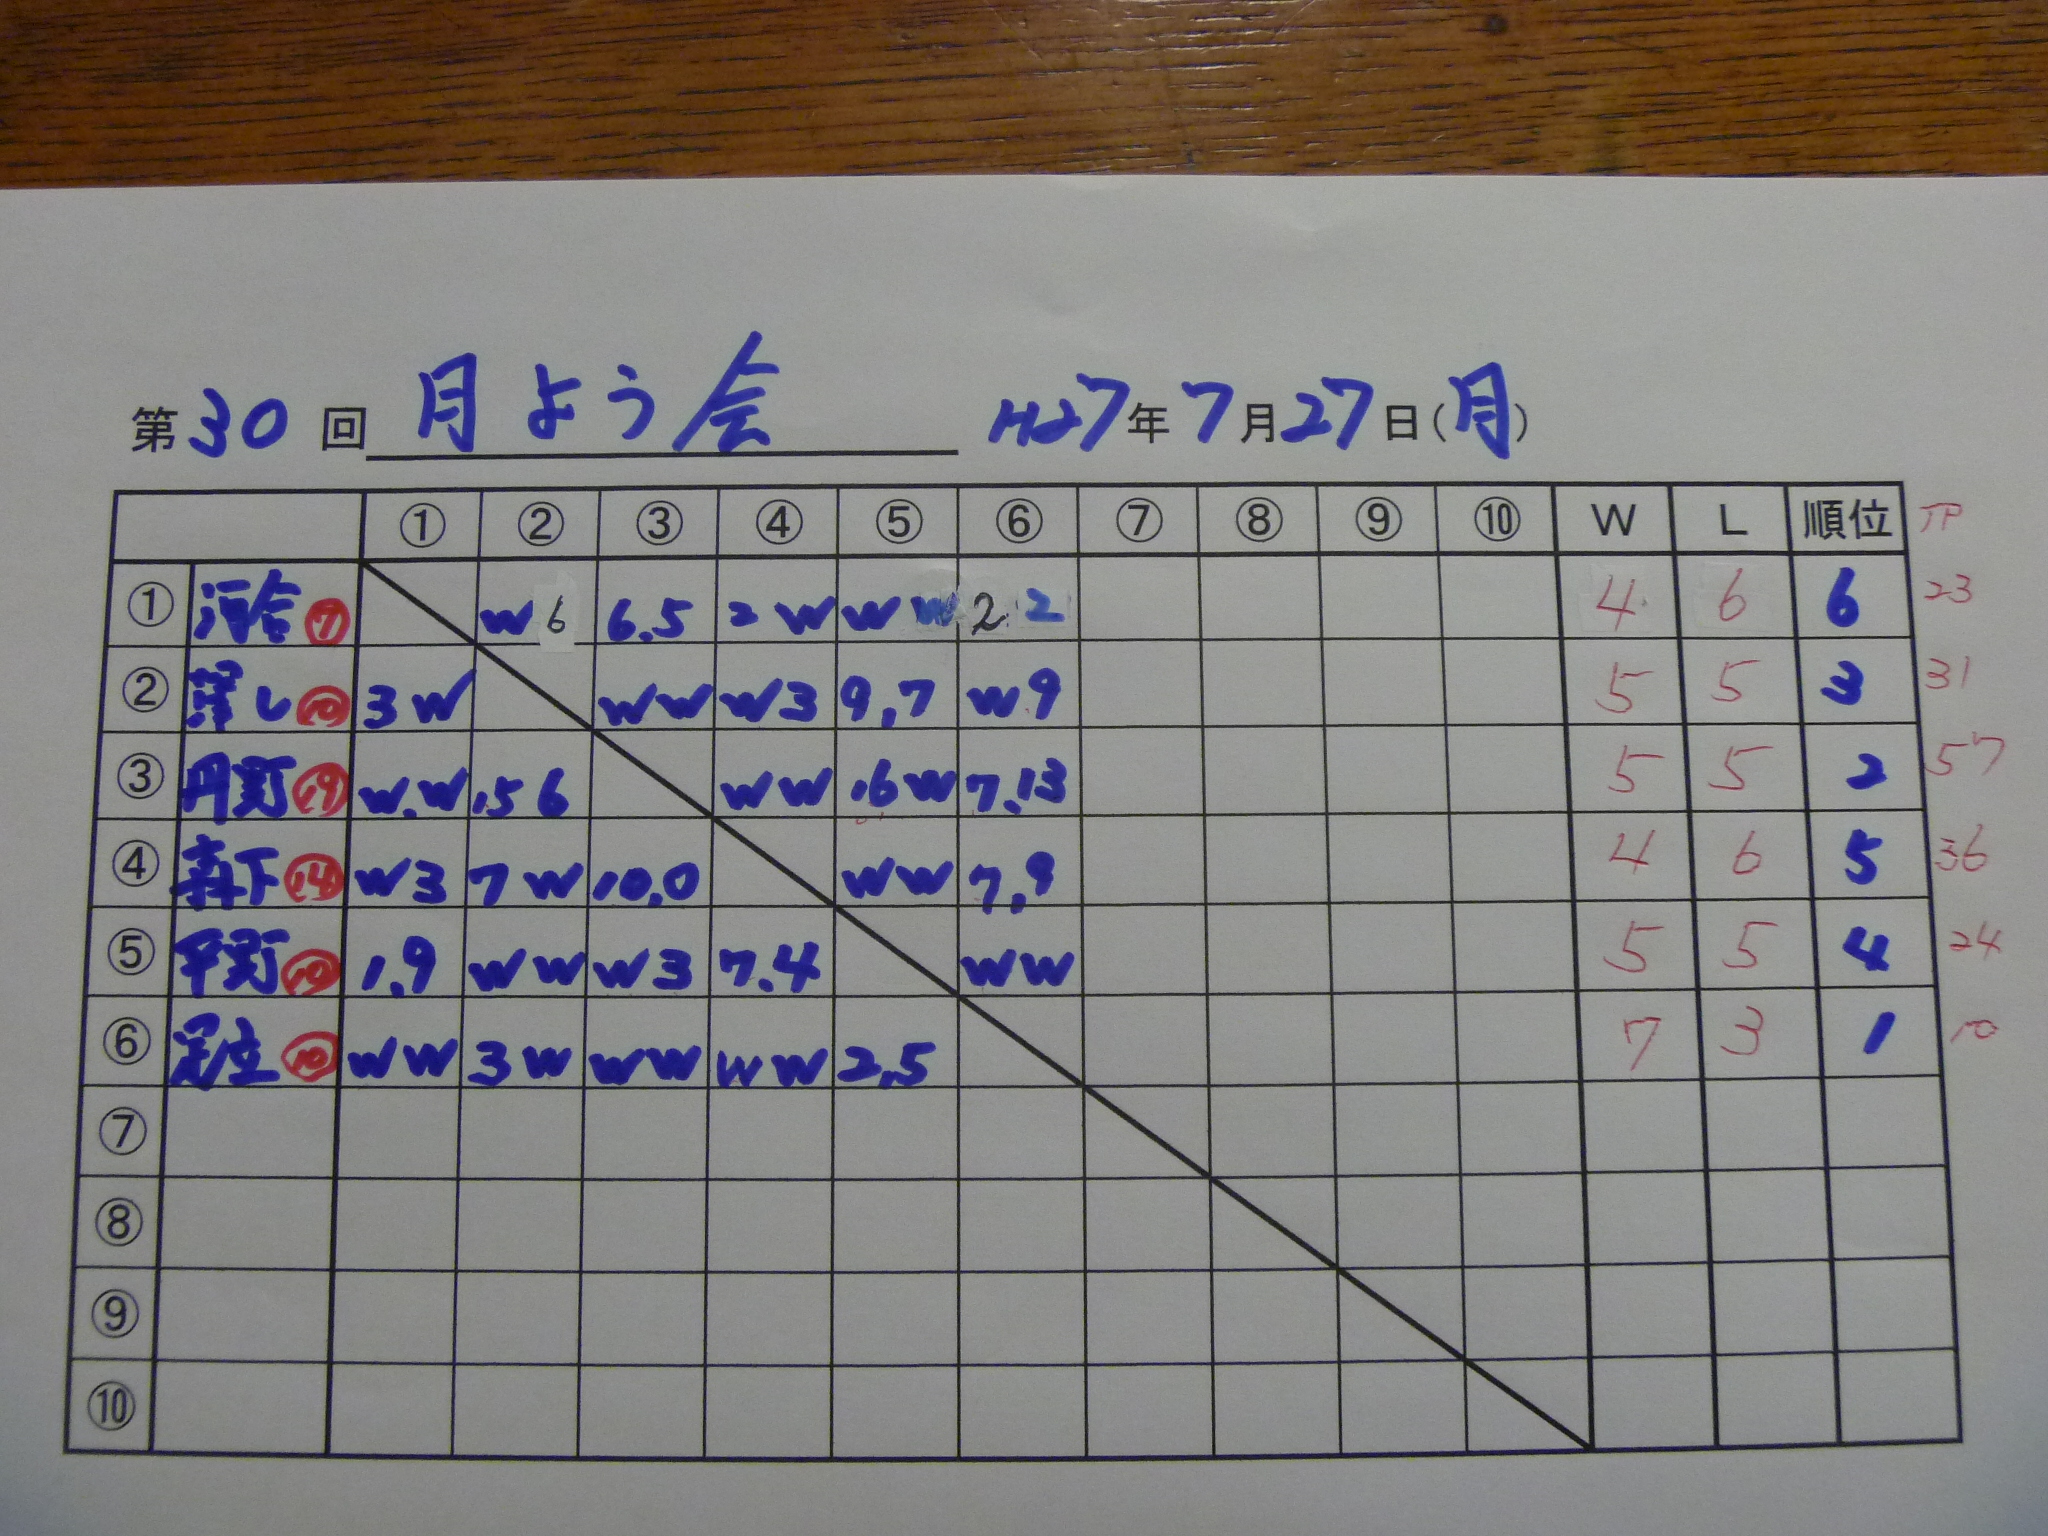 第30回 月よう会 H27年7月27日(月)
① ② ③ ④ ⑤ ⑥ ⑦ ⑧ ⑨ ⑩ W L 順位 TP
① 河合 ⑦ W 6 6.5 2 W W W 2 2 4 6 6 23
② し ⑩ 3 W W W W 3 9,7 W 9 5 5 3 31
③ 丹野 ⑲ W.W 15 6 W W 16 W 7.13 5 5 2 57
④ 森下 ⑭ W 3 7 W 10.0 W W 7,9 4 6 5 36
⑤ 平野 ⑩ 1.9 W W W 3 7.4 W W 5 5 4 24
⑥ 足立 ⑩ W W 3 W W W W W 2,5 7 3 1 10
⑦
⑧
⑨
⑩